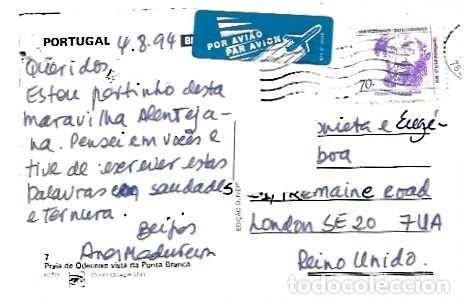 PORTUGAL 4.8.94
POR AVIÃO
PAR AVION
70-
Queridos,
Estou pertinho desta
maravilha Alenteja-
na. Pensei em vocês e
tive de escrever estas
palavras com saudades
e ternura.
Beijos
Ana Madureira
nieta e Eugé-
boa
Tremaine Road
London SE20 7UA
Reino Unido.
7
Praia de Odeceixe vista da Ponta Branca
FOTO
EDIÇÃO
todocoleccion.net